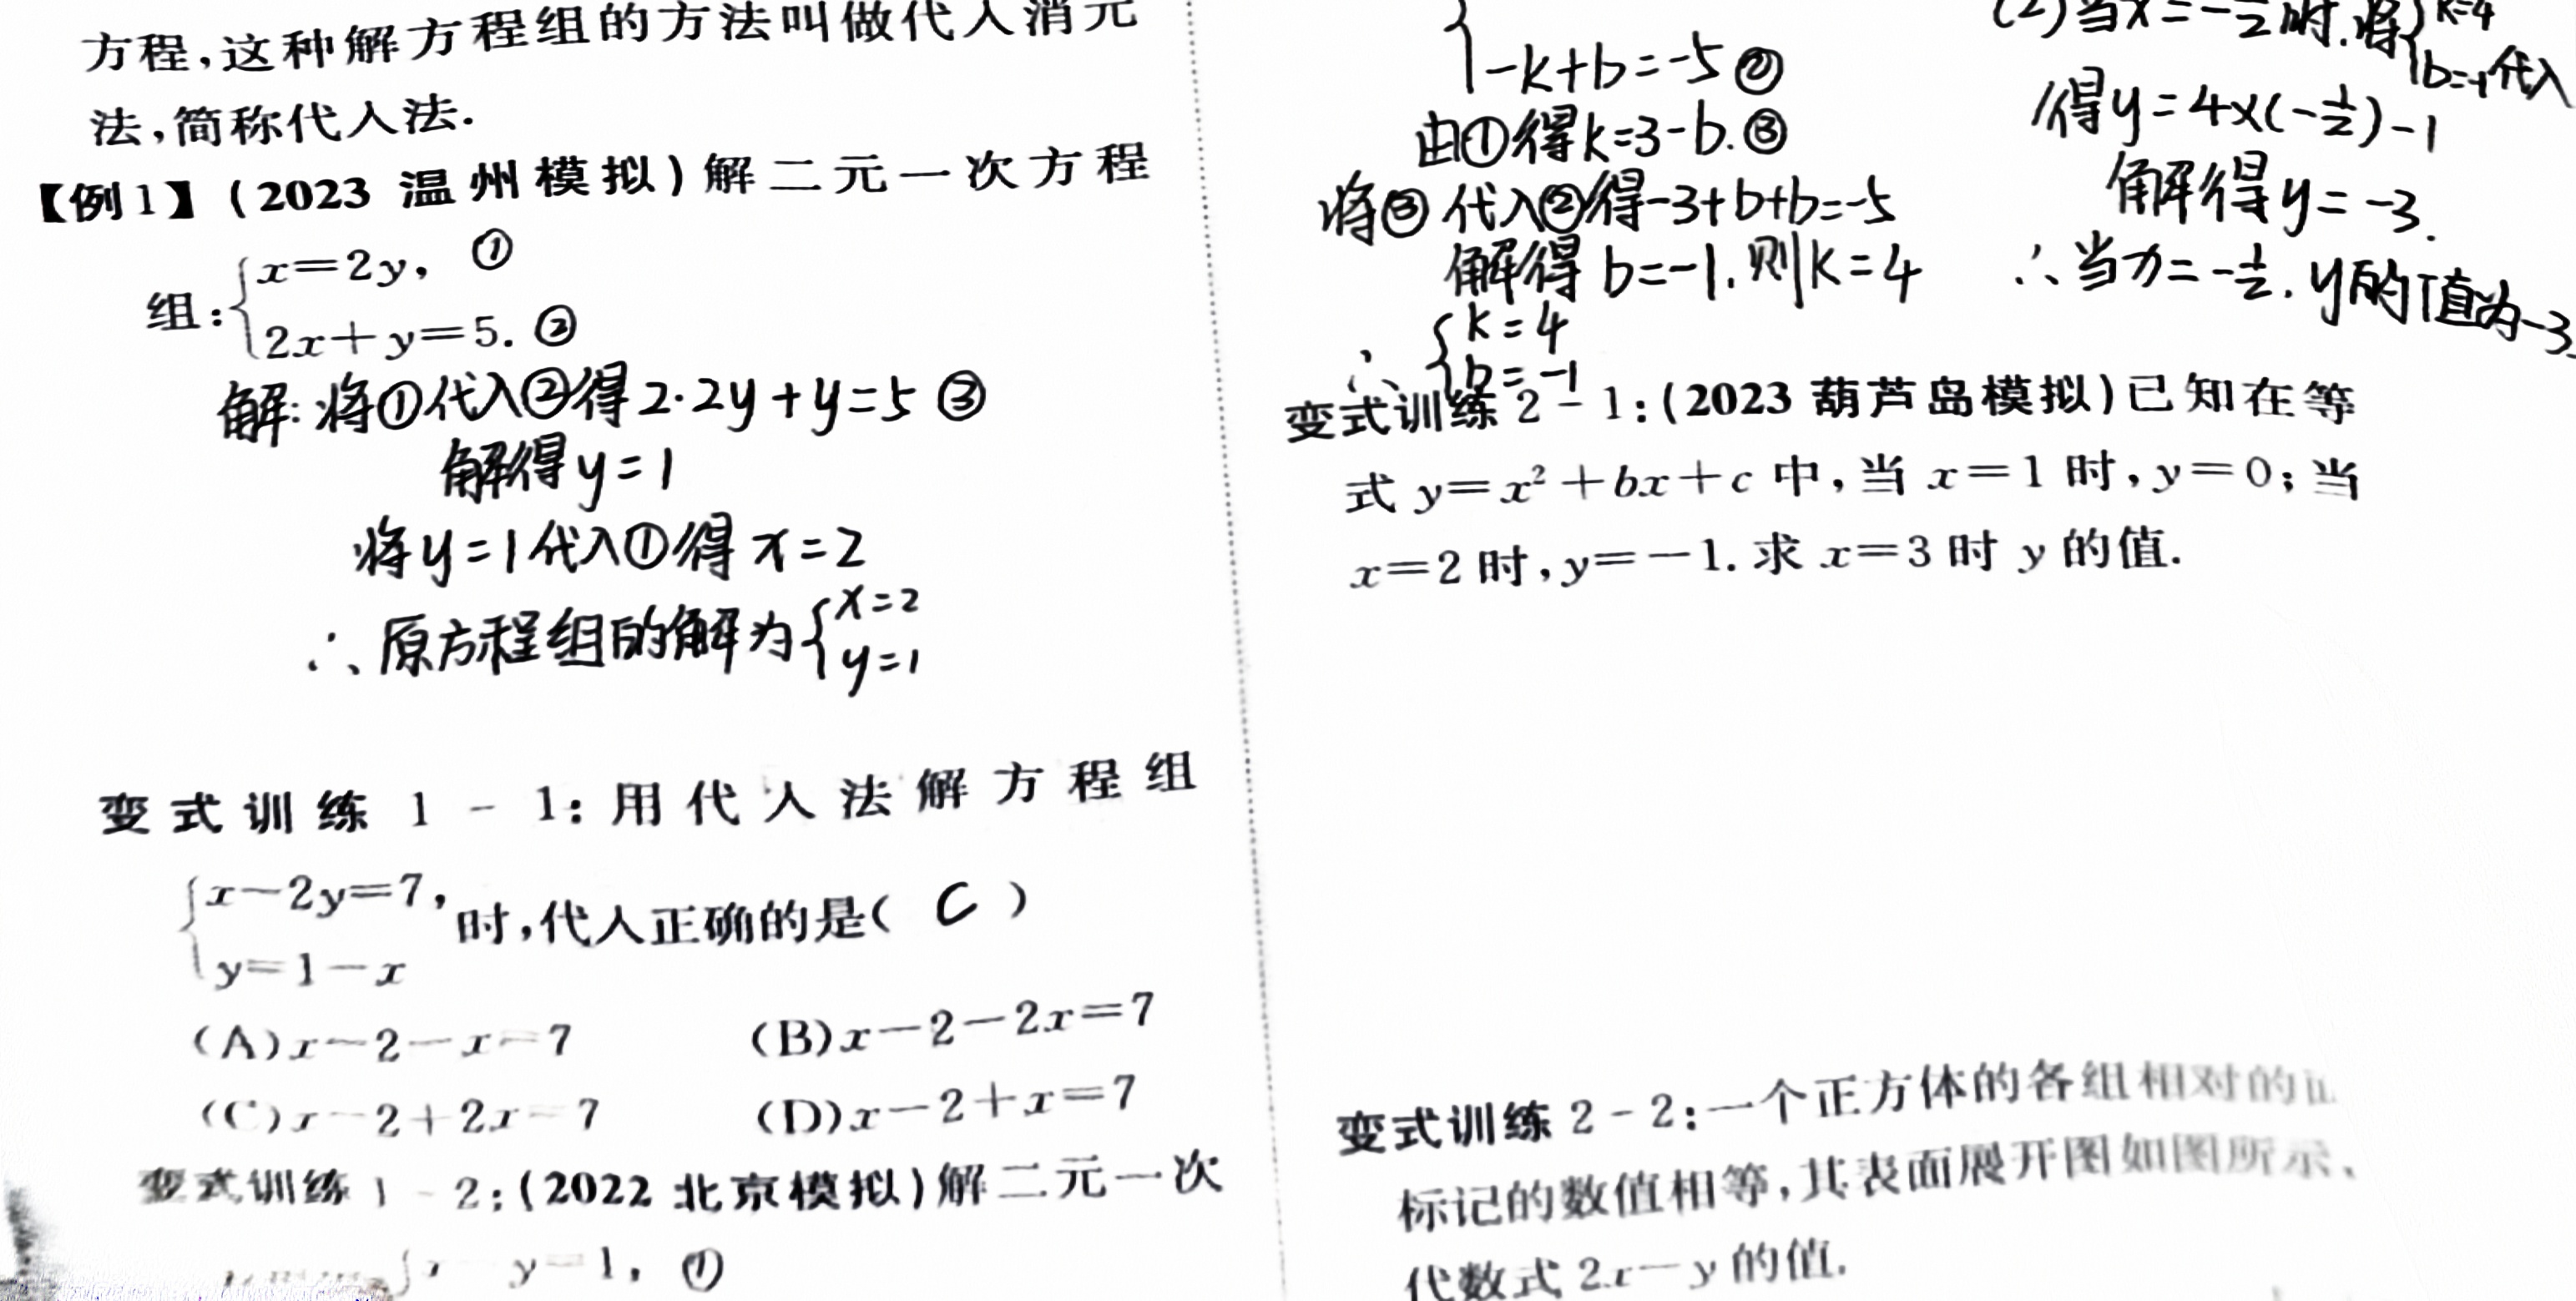 方程,这种解方程组的方法叫做代入消元
法,简称代入法.
【例1】(2023 温州模拟)解二元一次方程
组:{x=2y, ①
2x+y=5. ②
解: 将①代入②得 2·2y+y=5 ③
解得y=1
将y=1代入①得 x=2
∴原方程组的解为{x=2
y=1
变式训练 1-1:用代入法解方程组
{x-2y=7,
y=1-x
时,代入正确的是( C )
(A)x-2-x=7 (B)x-2-2x=7
(C)x-2+2x=7 (D)x-2+x=7
变式训练 1-2:(2022 北京模拟)解二元一次
y=1, ①
{-k+b=-5②
由①得k=3-b.③
将③代入②得-3+b+b=-5
解得 b=-1.则k=4
∴{k=4
b=-1
(2)当x=-1/2时.将{k=4
b=-1代入
得y=4×(-1/2)-1
解得y=-3.
∴当x=-1/2.y的值为-3.
变式训练 2-1:(2023 葫芦岛模拟)已知在等
式 y=x²+bx+c 中,当 x=1 时,y=0;当
x=2 时,y=-1.求 x=3 时 y 的值.
变式训练 2-2:一个正方体的各组相对的
标记的数值相等,其表面展开图如图所示,
代数式 2x-y 的值.